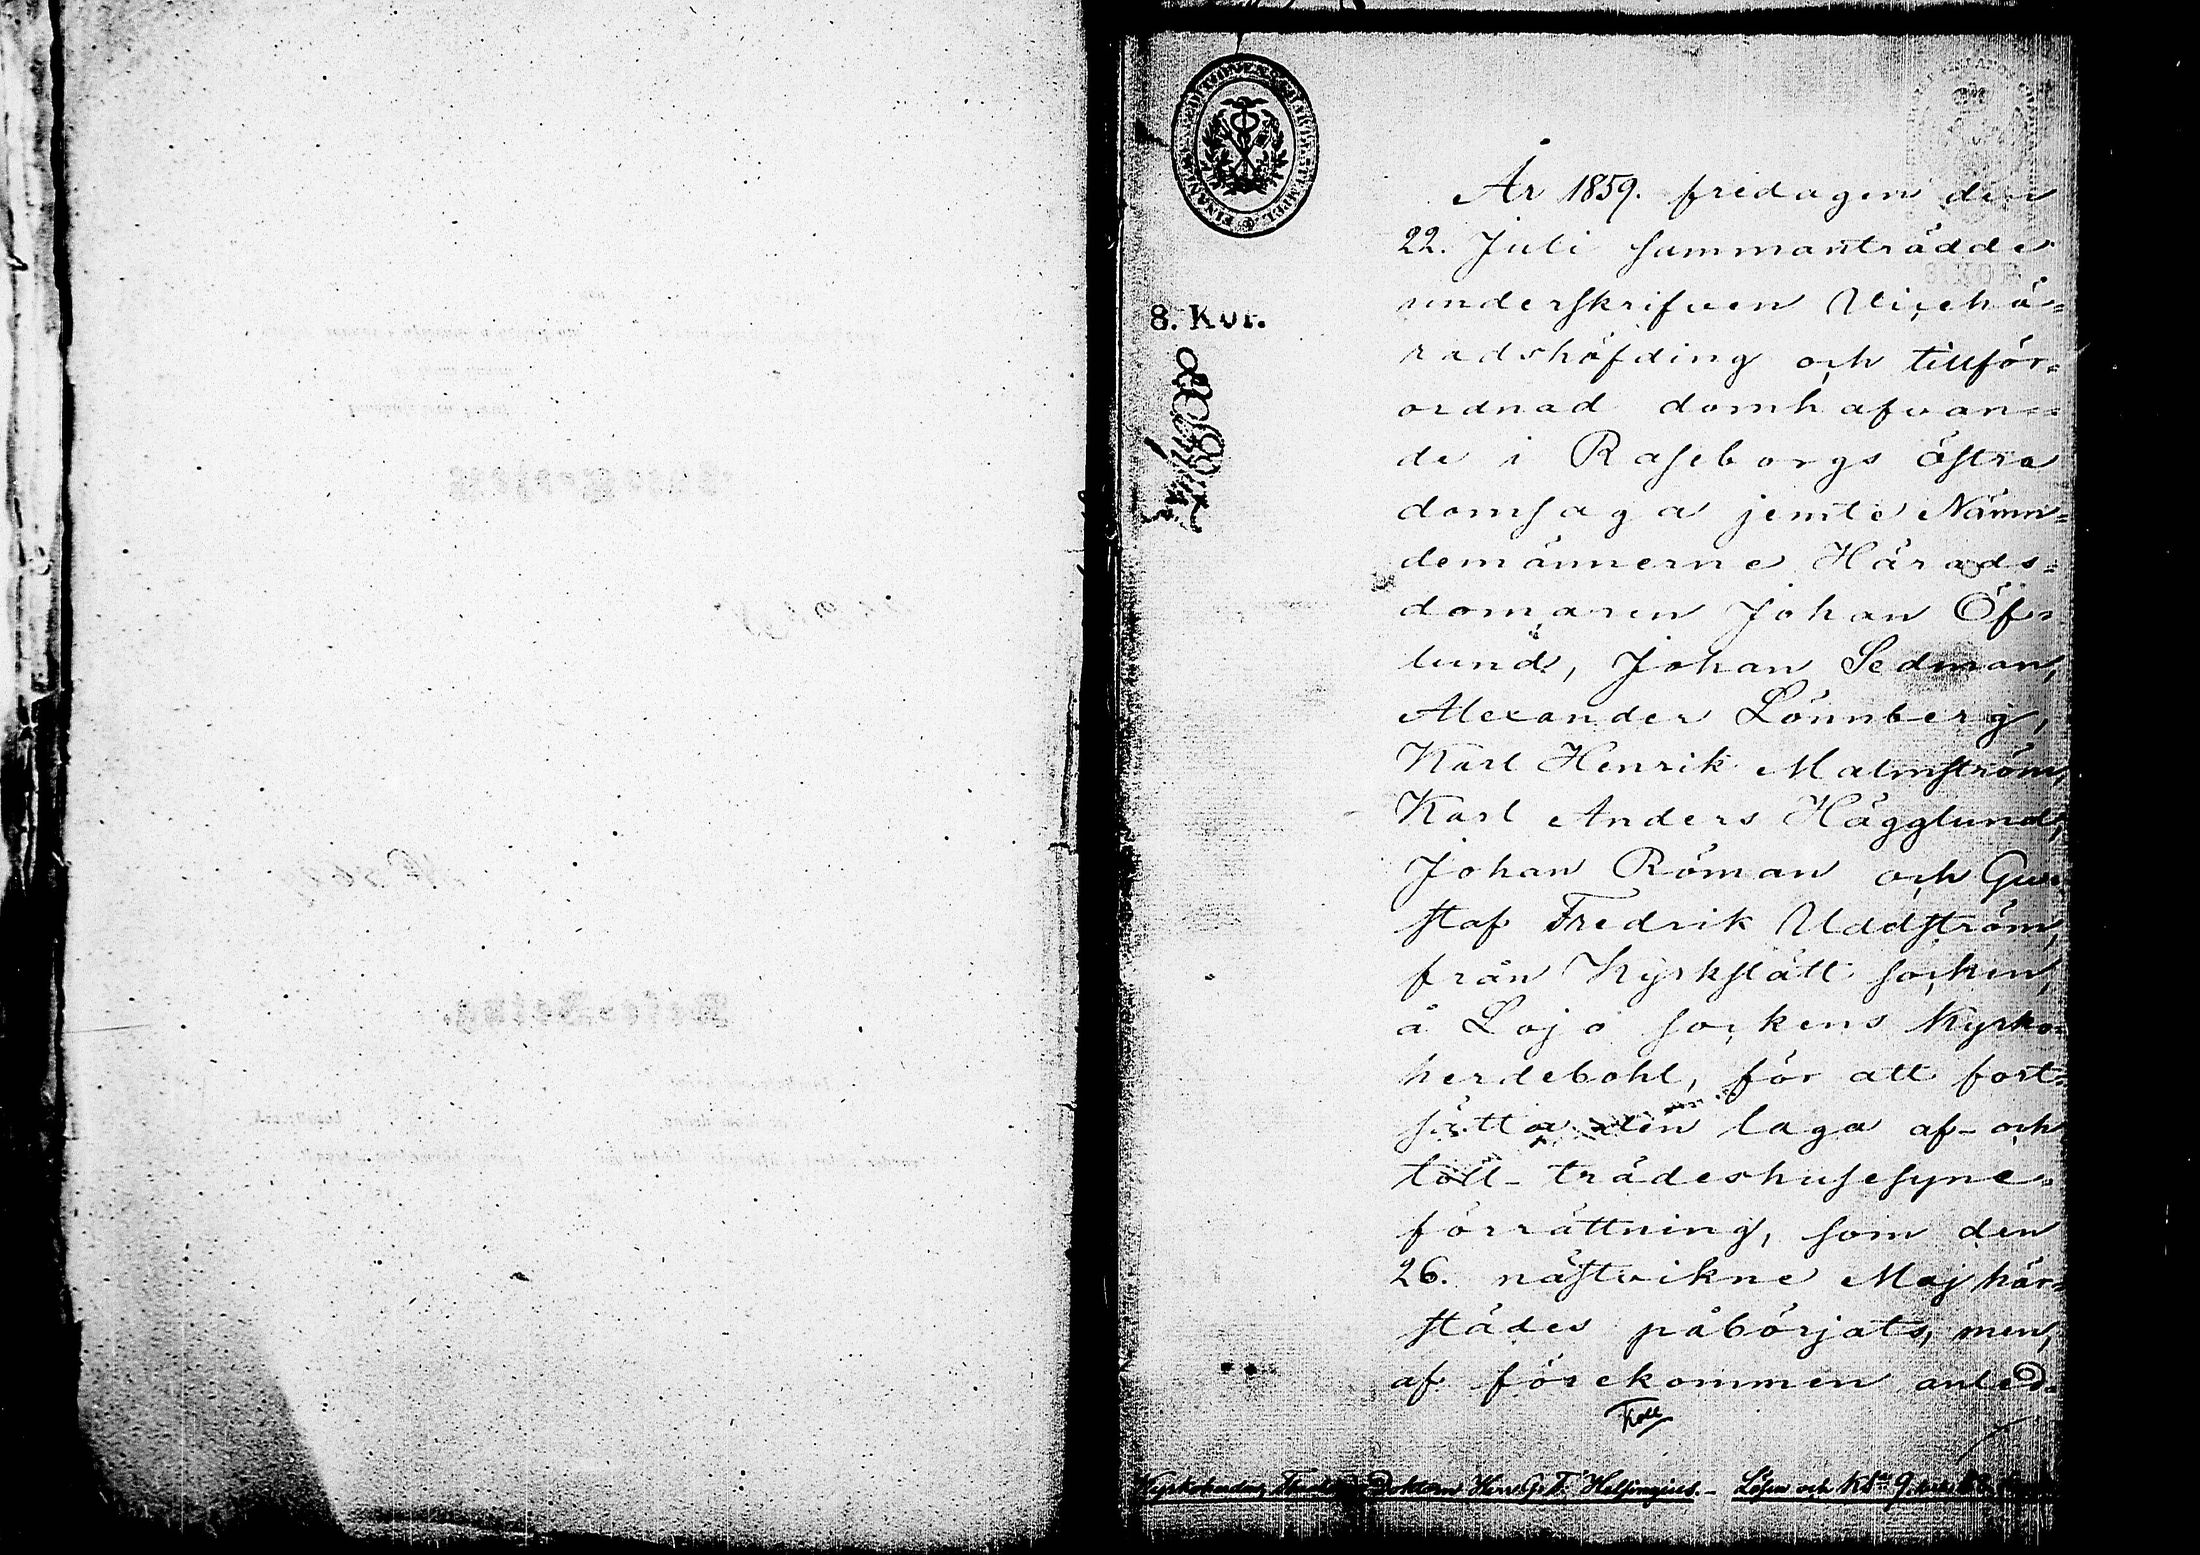 År 1859. fredagen den
22. Juli sammanträdde
underskrifven Vicehä=
radshöfding och tillför=
ordnad domhafvan=
de i Raseborgs östra
domsaga jemte Nämn=
demännerne Härads=
domaren Johan Öf=
lund, Johan Sedman,
Alexander Lönnberg,
Karl Henrik Malmström,
Karl Anders Hägglund,
Johan Röman och Gu=
staf Fredrik Uddström,
från Kyrkslätt socken,
å Lojo sockens Kyrko=
herdebohl, för att fort=
sätta den laga af- och
till- trädeshusesyne=
förrättning, som den
26. nästvikne Maj här=
städes påbörjats, men,
af förekommen anled=
8. Kop.
Kyrkoherden, Doktorn Herr G. F. Helsingius. - Lösen och